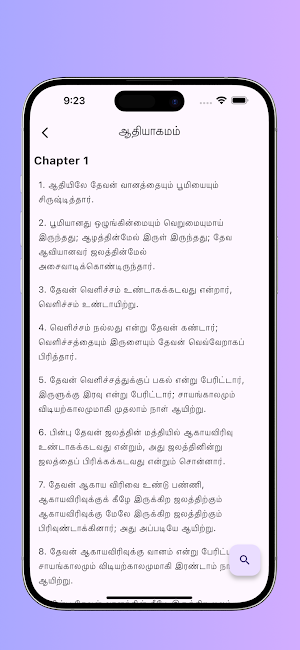 9:23
ஆதியாகமம்
Chapter 1
1. ஆதியிலே தேவன் வானத்தையும் பூமியையும்
சிருஷ்டித்தார்.
2. பூமியானது ஒழுங்கின்மையும் வெறுமையுமாய்
இருந்தது; ஆழத்தின்மேல் இருள் இருந்தது; தேவ
ஆவியானவர் ஜலத்தின்மேல்
அசைவாடிக்கொண்டிருந்தார்.
3. தேவன் வெளிச்சம் உண்டாகக்கடவது என்றார்,
வெளிச்சம் உண்டாயிற்று.
4. வெளிச்சம் நல்லது என்று தேவன் கண்டார்;
வெளிச்சத்தையும் இருளையும் தேவன் வெவ்வேறாகப்
பிரித்தார்.
5. தேவன் வெளிச்சத்துக்குப் பகல் என்று பேரிட்டார்,
இருளுக்கு இரவு என்று பேரிட்டார்; சாயங்காலமும்
விடியற்காலமுமாகி முதலாம் நாள் ஆயிற்று.
6. பின்பு தேவன் ஜலத்தின் மத்தியில் ஆகாயவிரிவு
உண்டாகக்கடவது என்றும், அது ஜலத்தினின்று
ஜலத்தைப் பிரிக்கக்கடவது என்றும் சொன்னார்.
7. தேவன் ஆகாய விரிவை உண்டு பண்ணி,
ஆகாயவிரிவுக்குக் கீழே இருக்கிற ஜலத்திற்கும்
ஆகாயவிரிவுக்கு மேலே இருக்கிற ஜலத்திற்கும்
பிரிவுண்டாக்கினார்; அது அப்படியே ஆயிற்று.
8. தேவன் ஆகாயவிரிவுக்கு வானம் என்று பேரிட்டா
சாயங்காலமும் விடியற்காலமுமாகி இரண்டாம் நா
ஆயிற்று.